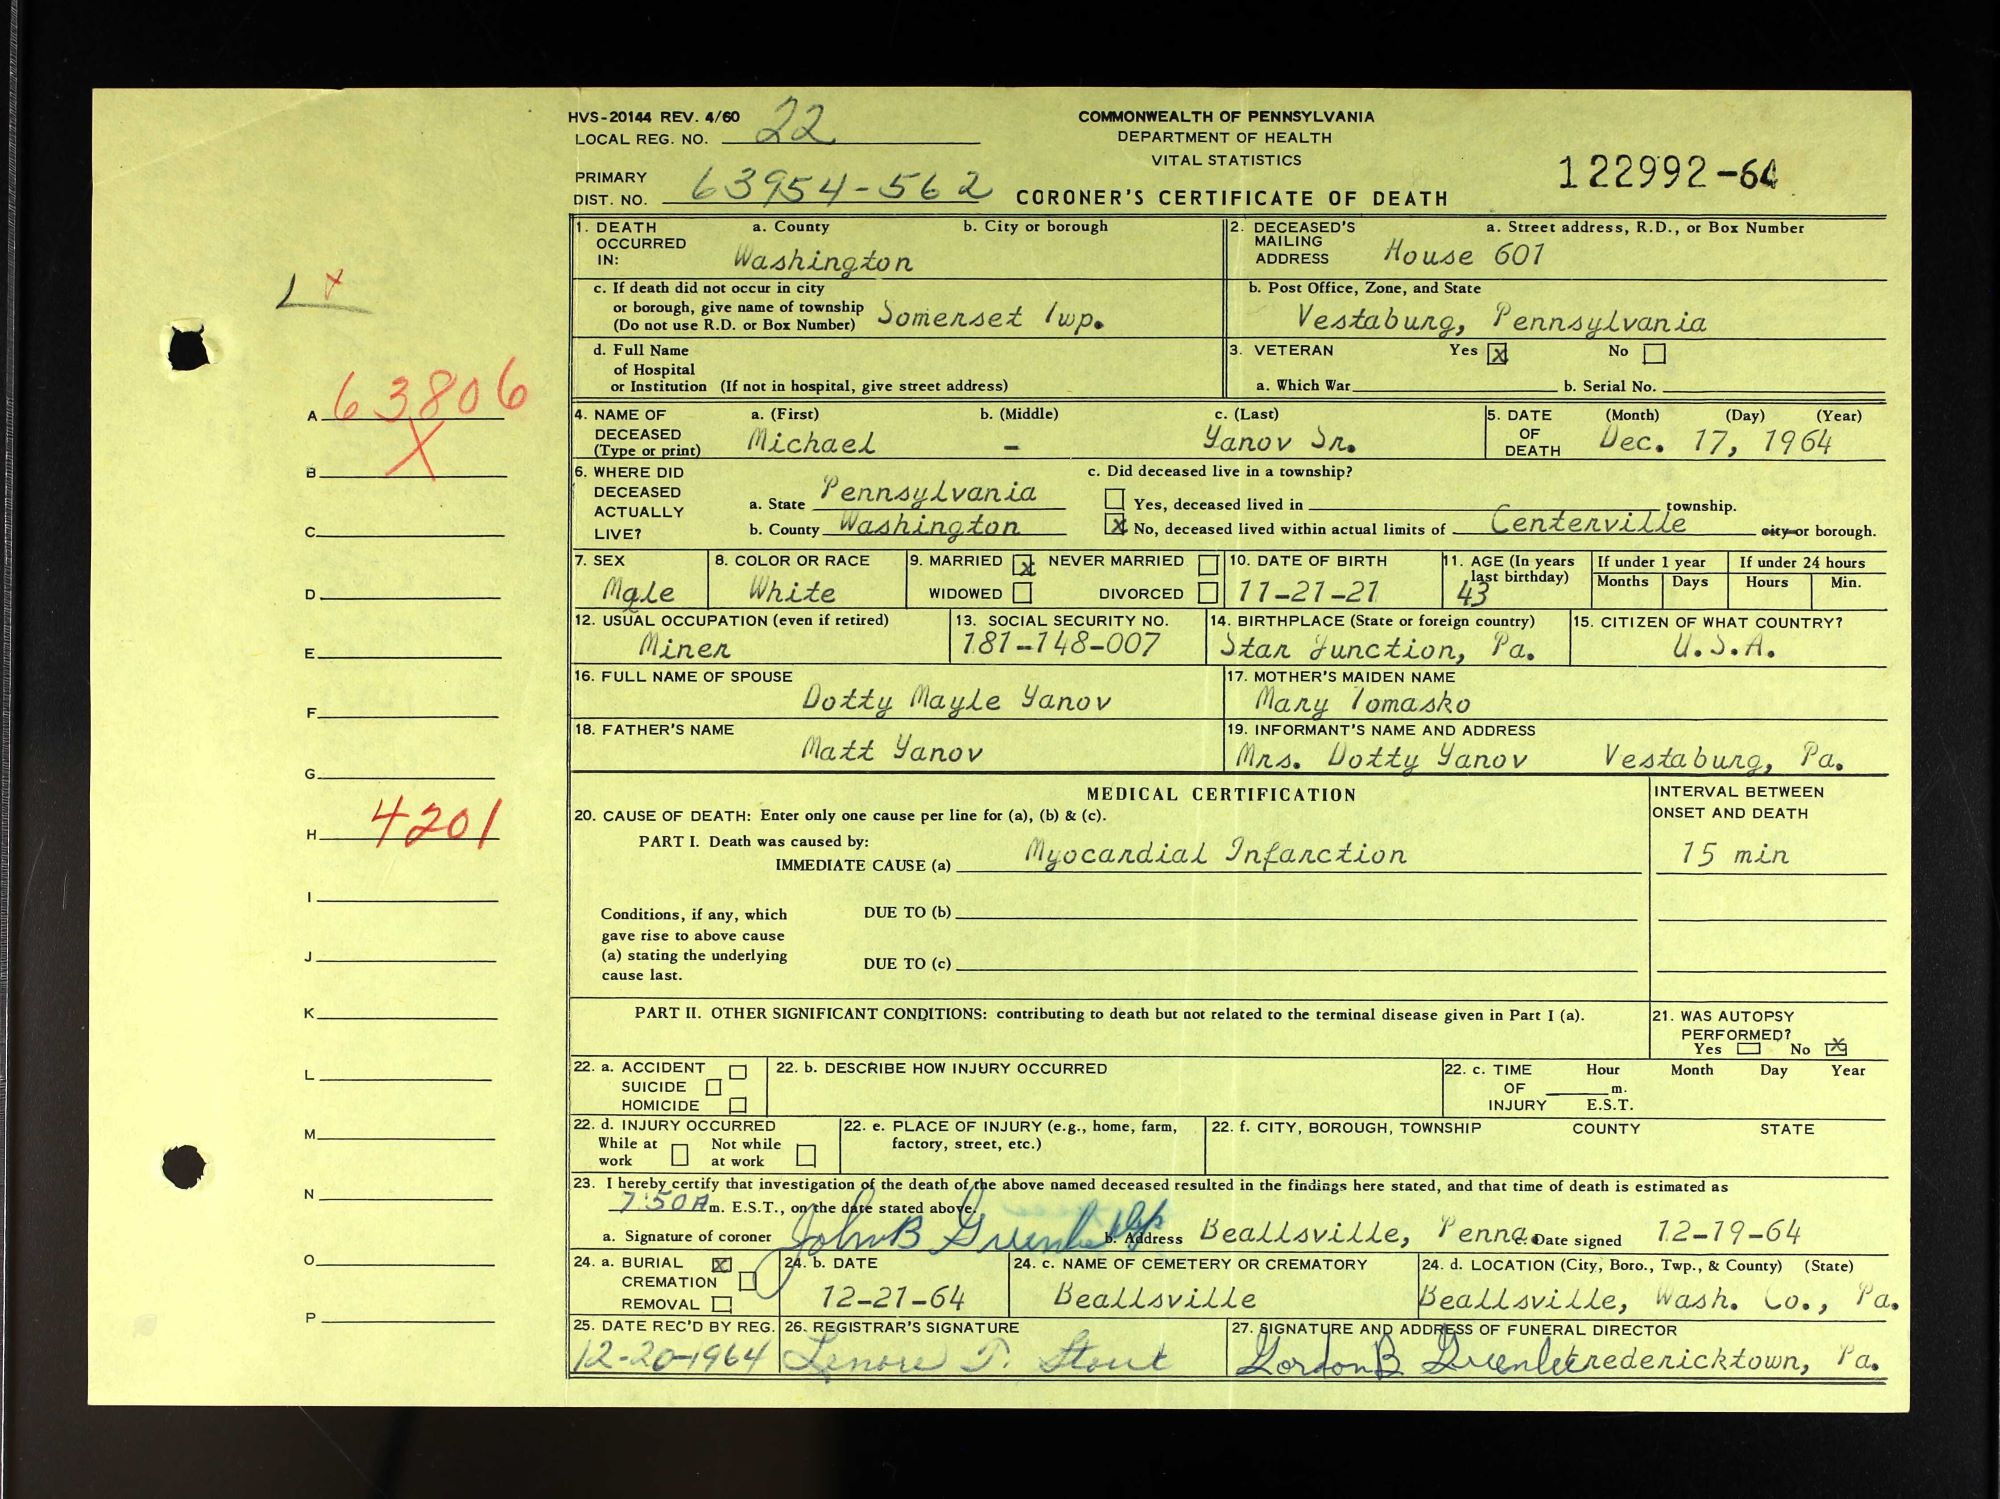 HVS-20144 REV. 4/60
LOCAL REG. NO. 22
COMMONWEALTH OF PENNSYLVANIA
DEPARTMENT OF HEALTH
VITAL STATISTICS
122992-64
PRIMARY
DIST. NO. 63954-562
CORONER'S CERTIFICATE OF DEATH
1. DEATH OCCURRED IN: a. County b. City or borough
Washington
2. DECEASED'S MAILING ADDRESS a. Street address, R.D., or Box Number
House 601
c. If death did not occur in city
or borough, give name of township
(Do not use R.D. or Box Number) Somerset Twp.
b. Post Office, Zone, and State
Vestaburg, Pennsylvania
d. Full Name
of Hospital
or Institution (If not in hospital, give street address)
3. VETERAN Yes x No
a. Which War b. Serial No.
4. NAME OF DECEASED (Type or print) a. (First) b. (Middle) c. (Last)
Michael - Yanov Sr.
5. DATE OF DEATH (Month) (Day) (Year)
Dec. 17, 1964
6. WHERE DID DECEASED ACTUALLY LIVE?
a. State Pennsylvania
b. County Washington
c. Did deceased live in a township?
Yes, deceased lived in township.
x No, deceased lived within actual limits of Centerville city or borough.
7. SEX
Male
8. COLOR OR RACE
White
9. MARRIED x NEVER MARRIED
WIDOWED DIVORCED
10. DATE OF BIRTH
11-21-21
11. AGE (In years last birthday)
43
If under 1 year
Months Days
If under 24 hours
Hours Min.
12. USUAL OCCUPATION (even if retired)
Miner
13. SOCIAL SECURITY NO.
181-148-007
14. BIRTHPLACE (State or foreign country)
Star Junction, Pa.
15. CITIZEN OF WHAT COUNTRY?
U.S.A.
16. FULL NAME OF SPOUSE
Dotty Mayle Yanov
17. MOTHER'S MAIDEN NAME
Mary Tomasko
18. FATHER'S NAME
Matt Yanov
19. INFORMANT'S NAME AND ADDRESS
Mrs. Dotty Yanov Vestaburg, Pa.
MEDICAL CERTIFICATION
INTERVAL BETWEEN
ONSET AND DEATH
20. CAUSE OF DEATH: Enter only one cause per line for (a), (b) & (c).
PART I. Death was caused by:
IMMEDIATE CAUSE (a) Myocardial Infarction
15 min
Conditions, if any, which
gave rise to above cause
(a) stating the underlying
cause last.
DUE TO (b)
DUE TO (c)
PART II. OTHER SIGNIFICANT CONDITIONS: contributing to death but not related to the terminal disease given in Part I (a).
21. WAS AUTOPSY
PERFORMED?
Yes No x
22. a. ACCIDENT
SUICIDE
HOMICIDE
22. b. DESCRIBE HOW INJURY OCCURRED
22. c. TIME OF INJURY Hour m. E.S.T. Month Day Year
22. d. INJURY OCCURRED
While at work Not while at work
22. e. PLACE OF INJURY (e.g., home, farm,
factory, street, etc.)
22. f. CITY, BOROUGH, TOWNSHIP COUNTY STATE
23. I hereby certify that investigation of the death of the above named deceased resulted in the findings here stated, and that time of death is estimated as
7:50 A m. E.S.T., on the date stated above.
a. Signature of coroner John B Greenlee b. Address Beallsville, Penna. c. Date signed 12-19-64
24. a. BURIAL x
CREMATION
REMOVAL
24. b. DATE
12-21-64
24. c. NAME OF CEMETERY OR CREMATORY
Beallsville
24. d. LOCATION (City, Boro., Twp., & County) (State)
Beallsville, Wash. Co., Pa.
25. DATE REC'D BY REG.
12-20-1964
26. REGISTRAR'S SIGNATURE
Lenore T. Stout
27. SIGNATURE AND ADDRESS OF FUNERAL DIRECTOR
Gordon B Greenlee Fredericktown, Pa.
A 63806
B X
C
D
E
F
G
H 4201
I
J
K
L
M
N
O
P